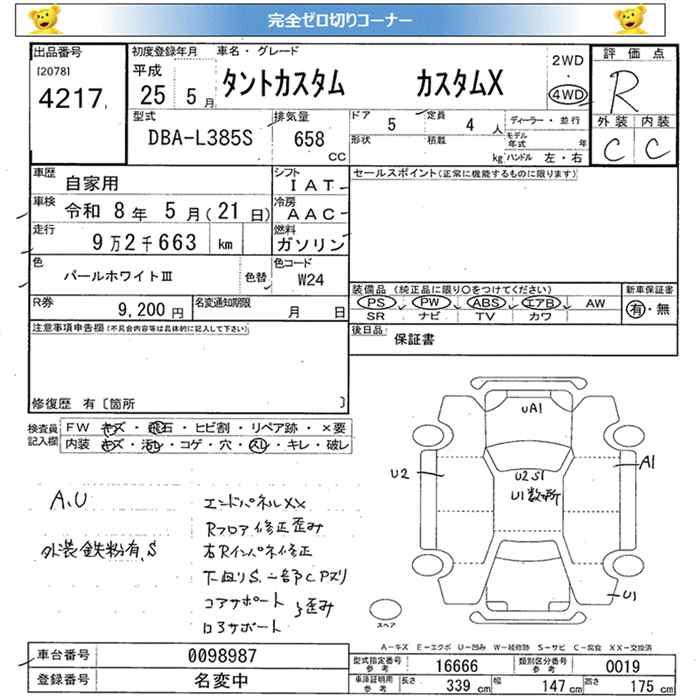 完全ゼロ切りコーナー
出品番号
[2078]
4217
初度登録年月
平成
25 5 月
車名・グレード
タントカスタム カスタムX
2WD
・
4WD
評価点
R
外装 内装
C C
型式
DBA-L385S
排気量
658
CC
ドア
5
定員
4 人
形状
積載
kg
ディーラー・並行
モデル年式
年
ハンドル 左・右
車歴
自家用
シフト
IAT
セールスポイント(正常に機能するものに限ります)
車検
令和 8 年 5 月(21 日)
冷房
AAC
走行
9万2千663 km
燃料
ガソリン
色
パールホワイトⅢ
色替
色コード
W24
装備品 (純正品に限り○をつけてください)
PS PW ABS エアB AW
SR ナビ TV カワ
新車保証書
有・無
R券
9,200 円
名変通知期限
月 日
後日品
保証書
注意事項申告欄(不具合内容等は具体的に記入して下さい)
修復歴 有[箇所 ]
検査員
記入欄
FW キズ・飛石・ヒビ割・リペア跡・×要
内装 キズ・汚レ・コゲ・穴・スレ・キレ・破レ
A,U
外装鉄粉有,S
エンドパネルXX
Rフロア修正歪み
右Rインパネ修正
下廻りS,一部C,Pヌリ
コアサポート
ロアサポート
歪み
UA1
U2
A1
U2 S1
U1数ヶ所
U1
スペア
A-キズ E-エクボ U-凹み W-補修跡 S-サビ C-腐食 XX-交換済
車台番号
0098987
登録番号
名変中
型式指定番号
参考
16666
類別区分番号
参考
0019
車庫証明用
参考
長さ 339 cm 幅 147 cm 高さ 175 cm